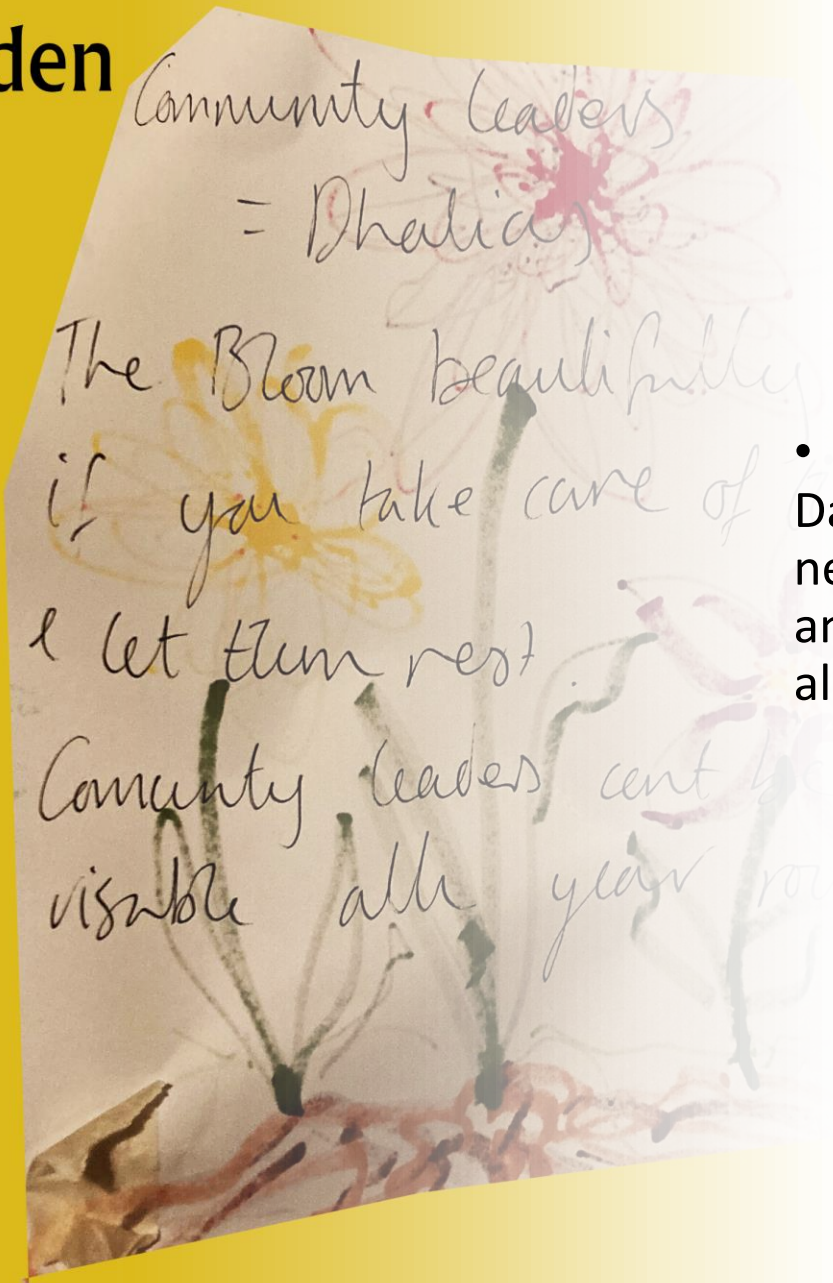 den
Community leaders
= Dhalias
The Bloom beautifully
if you take care of
& let them rest.
Comunty leaders cant be
visable all year
•
Da
ne
ar
al